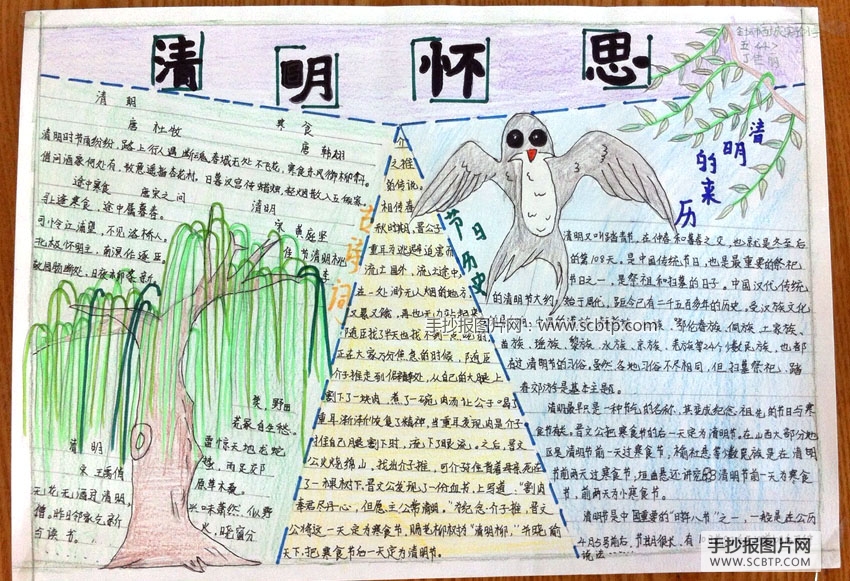 清明怀思
五<4>
清明的来历
清明
唐 杜牧
清明时节雨纷纷，路上行人
借问酒家何处有，牧童遥指杏花村。
寒食
唐 韩翃
春城无处不飞花，寒食东风御柳斜。
日暮汉宫传蜡烛，轻烟散入五侯家。
途中寒食
唐 宋之问
马上逢寒食，途中属暮春。
可怜江浦望，不见洛桥人。
北极怀明主，南溟作逐臣。
清明
宋 黄庭坚
佳节清明桃
笑，野田
荒冢
雷惊天地龙蛇
蛰，雨足郊
原草木柔。
清明
宋 王禹偁
无花无酒过清明，
兴味萧然似野
僧。昨日邻家乞新
火，晓窗分
与读书
古诗词
节日历史
介
之推
的传说。
相传春
秋时期，晋公
重耳为逃避迫害而
流亡国外，流亡途中，
在一处渺无人烟的地方，
又累又饿，再也无力站起来
正在大家万分焦急的时候，随臣
介子推走到僻静处，从自己的大腿上
割下了一块肉，煮了一碗肉汤让公子喝了
重耳渐渐恢复了精神，当重耳发现肉是介子
推自己腿上割下时，流下了眼泪。之后，晋文
公火烧绵山，找出介子推，
了一棵柳树下，晋文公发现了一份血书，上写道："割肉
奉君尽丹心，但愿主公常清明。"为纪念介子推，晋文
公将这一天定为寒食节，
天下，把寒食节后一天定为清明节。
清明又叫踏青节，在仲春和暮春之交，也就是冬至后
的第108天，是中国传统节日，也是最重要的祭祀
节日之一，是祭祖和扫墓的日子。中国汉族传统
的清明节大约始于周代，距今已有二千五百多年的历史，受汉族文化
鄂伦春族、侗族、土家族、
苗族、瑶族、黎族、水族、京族、羌族等24个少数民族，也都
有过清明节的习俗。虽然各地习俗不尽相同，但扫墓祭祀、踏
青郊游是基本主题。
清明最早只是一种节气的名称，其变成纪念祖先的节日与寒
食节有关。晋文公把寒食节的后一天定为清明节。在山西大部分地
区是清明节前一天过寒食节，榆社县等少数地方是在清明
节前两天过寒食节，垣曲县还讲究清明节前一天为寒食
节，前两天为小寒食节。
清明节是中国重要的"时年八节"之一，一般是在公历
4月5号前后，节期很长，有
说法
手抄报图片网：www.scbtp.com
手抄报图片网
WWW.SCBTP.COM